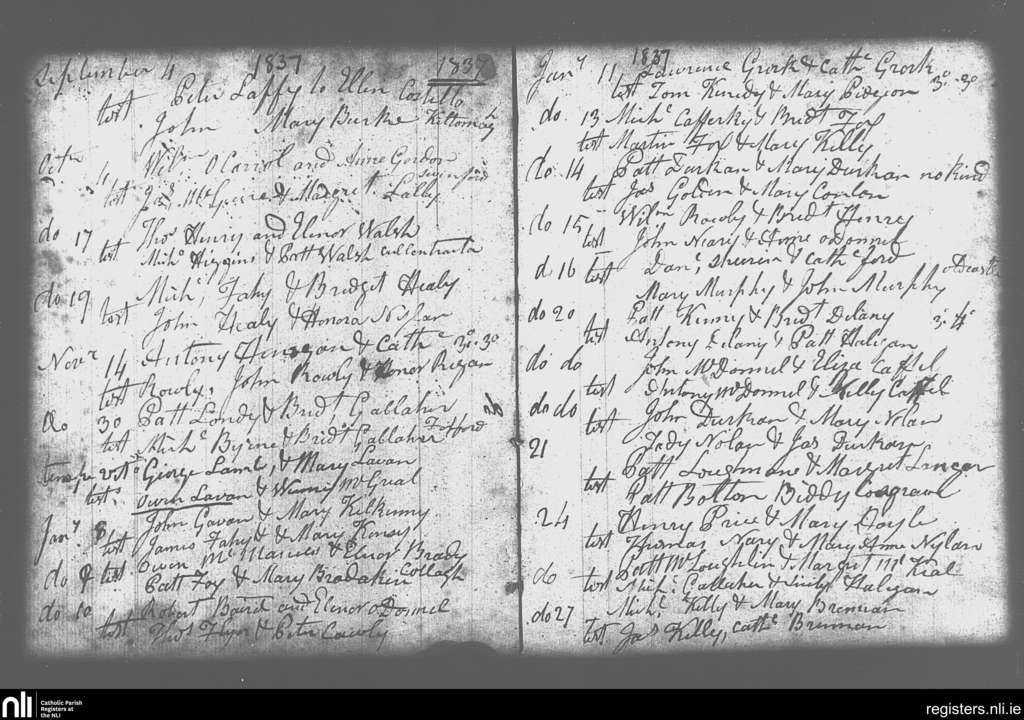 1837 1837
September 4 Peter Laffy to Ellen Costillo
test John Mary Burke Kiltomagh
Octr 4 Wilm OCarrol and Anne Gordon
Swinford
test Jas McGuire & Margret Lally
do 17 Thos Henry and Elinor Walsh
test Michl Higgins & Patt Walsh
do 19 Michl Fahy & Bridget Healy
test John Healy & Honora
Novr 14 Antony & Cathe 3o. 3o
test Rowly, John Rowly & Honor Regan
do 30 Patt Londy & Bridt Gallaher
test Michl Byrne & Bridt Gallaher Foxford
George Lamb, & Mary Lavan
tests Owen Lavan & McGreal
Jany 8 John Gavan & Mary Kilkenny
test James Fahy & Mary
do 9 Owen McManus & Elnor Brady
test Patt Foy & Mary Bradakin Collagh
do 10 Robert Baird and Elenor oDonnel
test Thos Flyn & Peter Cawly
1837
Jany 11 Lawrence Grork & Cathe Grork
test Tom Kenedy & Mary Pidgeon 3o. 3o
do. 13 Michl Cafferky & Bridt Fox
test Martin Fox & Mary Kelly
do 14 Patt Durkan & Mary Durkan no kind
test Jas Golden & Mary Conlon
do 15 Wilm Rowly & Bridt Henry
test John Neary & Anne oDonnel
d 16 Danl Sheerin & Cathe Ford
test Mary Murphy & John Murphy oldcastle
do 20 Patt Kenny & Bridt Delany 3o. 4o
test Antony Delany & Patt Haligan
do do John McDonnel & Eliza Caffel
test Antony McDonnel & Nelly Caffel
do do John Durkan & Mary Nolan
test Tady Nolan & Jas Durkan
21 Patt Loughnane & Margret
test Patt Bolton Biddy Cosgrave
24 Henry Price & Mary Doyle
test Thomas Nary & Mary Anne Nylan
do Patt McLoughlin & Margret McKeal
test Michl Gallaher & Haligan
do 27 Michl Kelly & Mary Brennan
test Jas Kelly, Cathe Brennan
nli Catholic Parish
Registers at
the NLI
registers.nli.ie